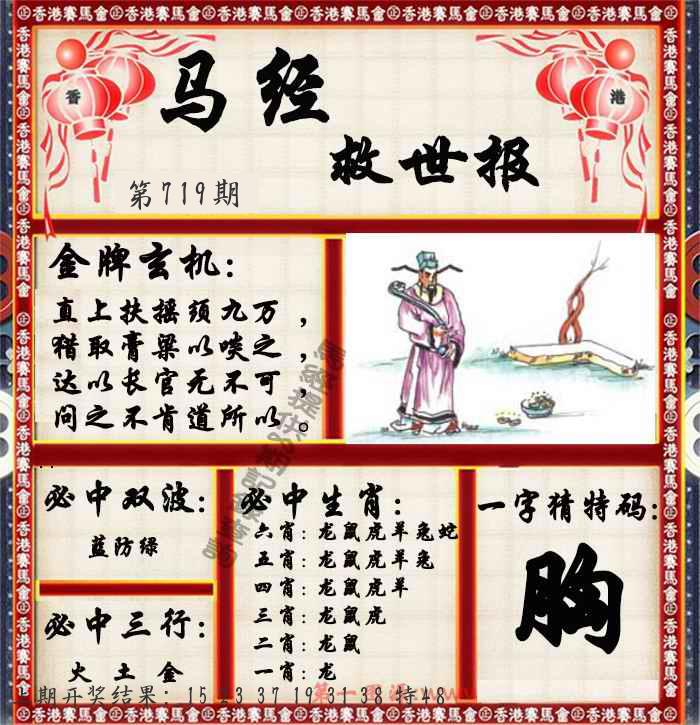 香港賽馬會 香港賽馬會 香港賽馬會 香港賽馬會 香港賽馬會 香港賽馬會
香 港
马经
救世报
第719期
金牌玄机:
直上扶摇须九万,
猎取膏粱以啖之,
达以长官无不可,
问之不肯道所以。
必中双波:
蓝防绿
必中三行:
火 土 金
必中生肖:
六肖:龙鼠虎羊兔蛇
五肖:龙鼠虎羊兔
四肖:龙鼠虎羊
三肖:龙鼠虎
二肖:龙鼠
一肖:龙
一字猜特码:
胸
期开奖结果:15 3 37 19 31 38 特48
第一